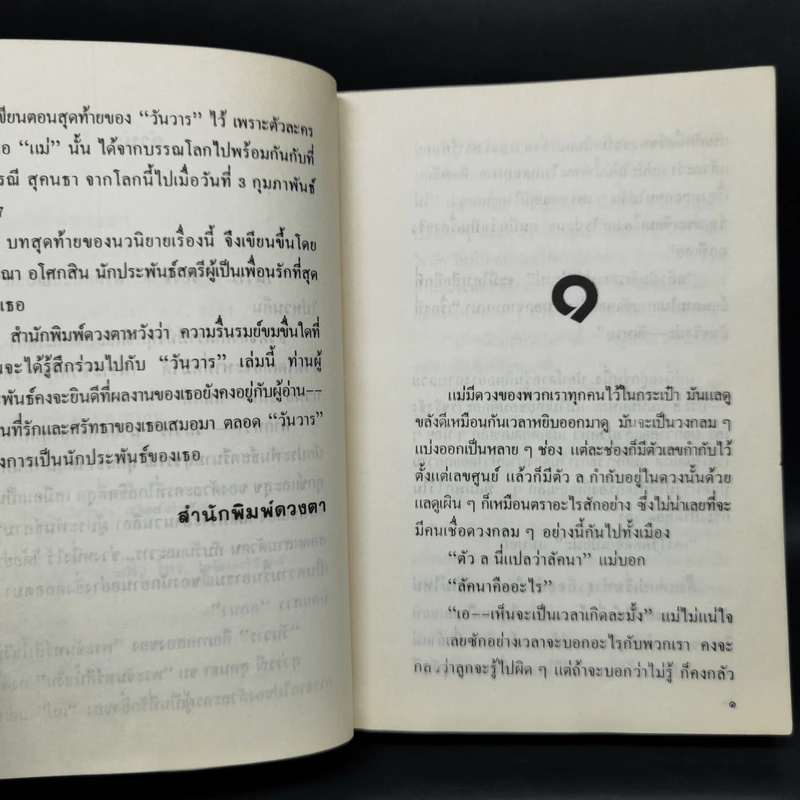 ขียนตอนสุดท้ายของ “วันวาร” ไว้ เพราะตัวละคร
อ “แม่” นั้น ได้จากบรรณโลกไปพร้อมกันกับที่
รณี สุคนธา จากโลกนี้ไปเมื่อวันที่ 3 กุมภาพันธ์
7
บทสุดท้ายของนวนิยายเรื่องนี้ จึงเขียนขึ้นโดย
ณา อโศกสิน นักประพันธ์สตรีผู้เป็นเพื่อนรักที่สุด
งเธอ
สำนักพิมพ์ดวงตาหวังว่า ความรื่นรมย์ขมขื่นใดที่
นจะได้รู้สึกร่วมไปกับ “วันวาร” เล่มนี้ ท่านผู้
ะพันธ์คงจะยินดีที่ผลงานของเธอยังคงอยู่กับผู้อ่าน--
นที่รักและศรัทธาของเธอเสมอมา ตลอด “วันวาร”
งการเป็นนักประพันธ์ของเธอ
สำนักพิมพ์ดวงตา
๑
แม่มีดวงของพวกเราทุกคนไว้ในกระเป๋า มันแลดู
ขลังดีเหมือนกันเวลาหยิบออกมาดู มันจะเป็นวงกลม ๆ
แบ่งออกเป็นหลาย ๆ ช่อง แต่ละช่องก็มีตัวเลขกำกับไว้
ตั้งแต่เลขศูนย์ แล้วก็มีตัว ล กำกับอยู่ในดวงนั้นด้วย
แลดูเผิน ๆ ก็เหมือนตราอะไรสักอย่าง ซึ่งไม่น่าเลยที่จะ
มีคนเชื่อดวงกลม ๆ อย่างนี้กันไปทั้งเมือง
“ตัว ล นี่แปลว่าลัคนา” แม่บอก
“ลัคนาคืออะไร”
“เอ--เห็นจะเป็นเวลาเกิดละมั้ง” แม่ไม่แน่ใจ
เลยซักอย่างเวลาจะบอกอะไรกับพวกเรา คงจะ
กลัวว่าลูกจะรู้ไปผิด ๆ แต่ถ้าจะบอกว่าไม่รู้ ก็คงกลัว
๑